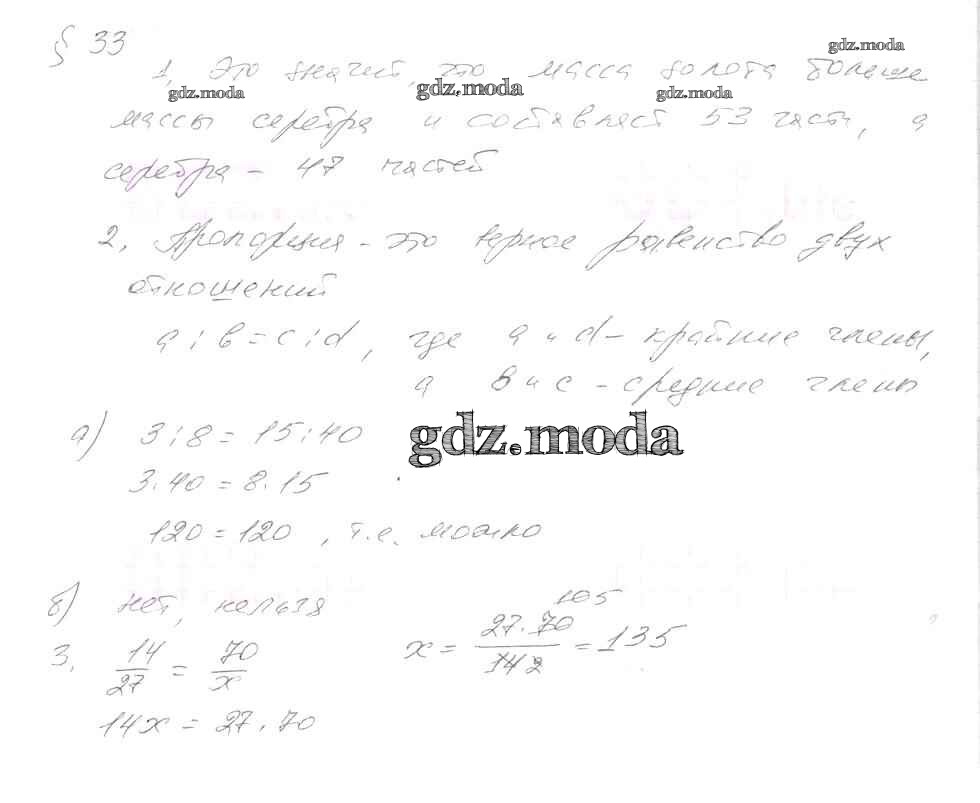 § 33
1, Это значит, что масса золота больше
массы серебра и составляет 53 части, а
серебра - 47 частей
2, Пропорция - это верное равенство двух
отношений
a : b = c : d, где a и d - крайние члены,
а b и c - средние члены
а) 3 : 8 = 15 : 40
3 · 40 = 8 · 15
120 = 120, т.е. можно
б) нет, нельзя
3. 14/27 = 70/x x = 27 · 70/14 = 135
14x = 27 · 70
gdz.moda
gdz.moda
gdz.moda
gdz.moda
gdz.moda